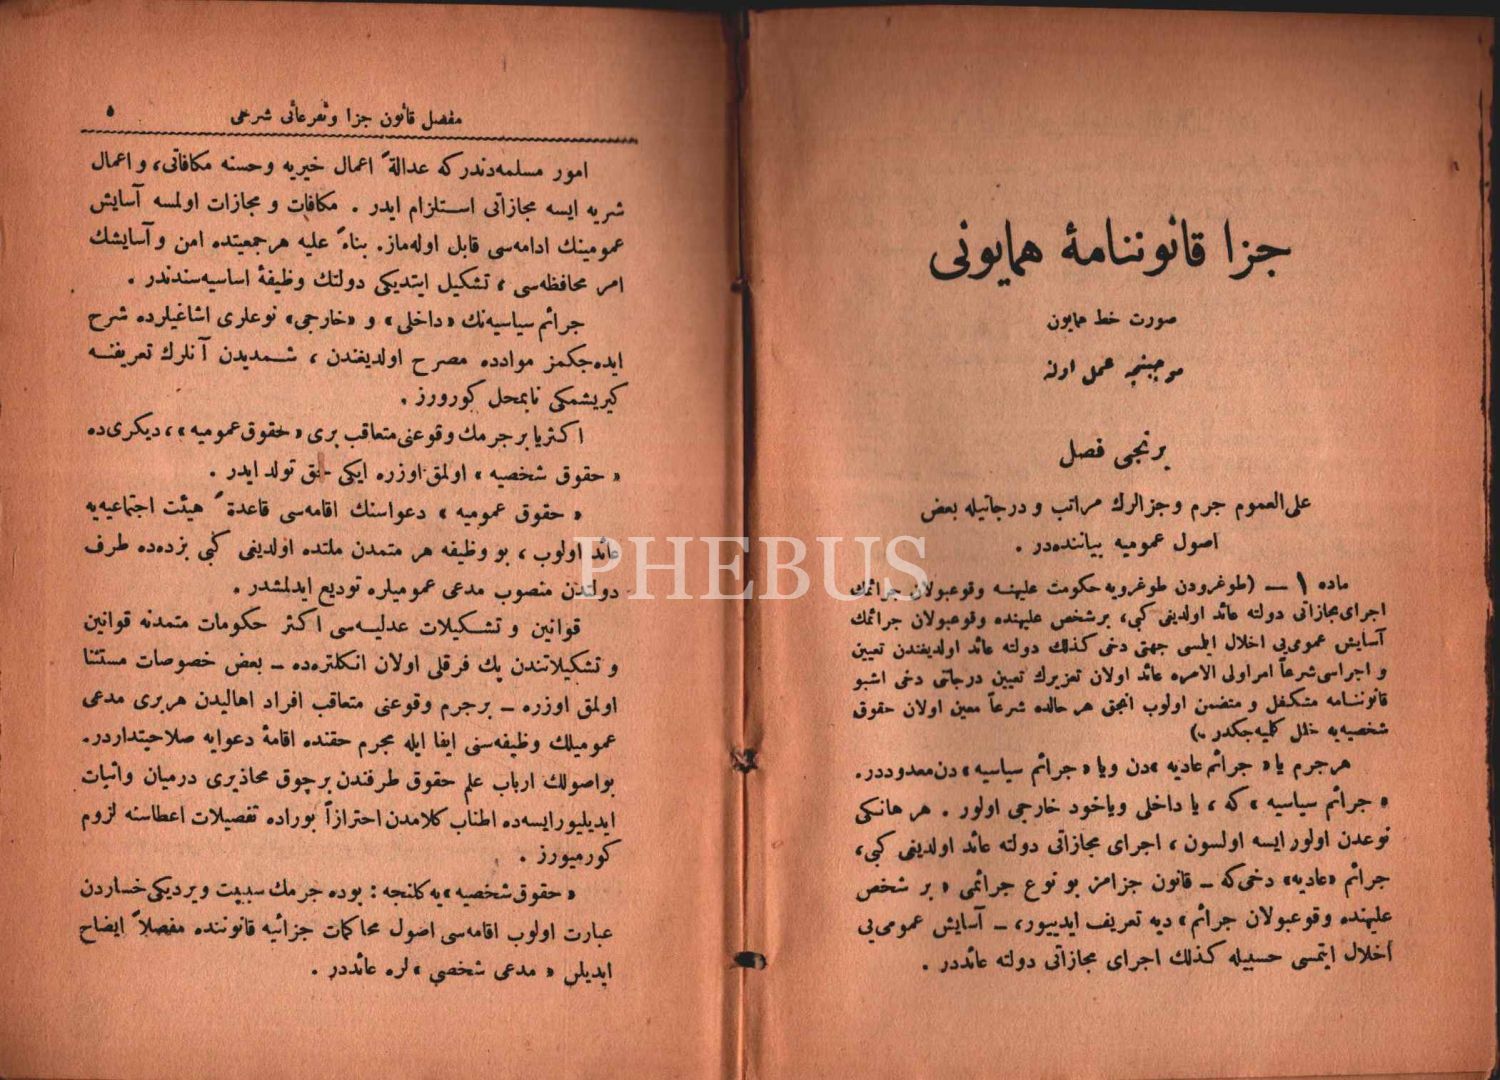 جزا قانوننامۀ همایونی
صورت خط همایون
موجبنجه عمل اولنه
برنجی فصل
علی العموم جرم و جزالرك مراتب و درجاتیله بعض
اصول عمومیه بیاننده‌در .
ماده ۱ — (طوغرودن طوغرویه حکومت علیهنه وقوعبولان جرائمك
اجرای مجازاتی دولته عائد اولدیغی کبی، بر شخص علیهنده وقوعبولان جرائمك
آسایش عمومی‌یی اخلال ایلمسی جهتی دخی کذلك دولته عائد اولدیغندن تعیین
و اجراسی شرعاً امر اولی الامره عائد اولان تعزیرك تعیین درجاتی دخی اشبو
قانوننامه متکفل و متضمن اولوب انجق هر حالده شرعاً معین اولان حقوق
شخصیه‌یه خلل کلمیه‌جکدر .)
هر جرم یا « جرائم عادیه »دن ویا « جرائم سیاسیه » دن معدوددر.
« جرائم سیاسیه » که ، یا داخلی ویاخود خارجی اولور . هر هانکی
نوعدن اولور ایسه اولسون ، اجرای مجازاتی دولته عائد اولدیغی کبی،
جرائم «عادیه» دخی که — قانون جزامز بو نوع جرائمی « بر شخص
علیهنده وقوعبولان جرائم» دیه تعریف ایدییور، — آسایش عمومی‌یی
اخلال ایتمسی حسبیله کذلك اجرای مجازاتی دولته عائددر .
مفصل قانون جزا و تفرعاتی شرعی ٥
امور مسلمه‌دندرکه عدالةً اعمال خیریه و حسنه مکافاتی، و اعمال
شریه ایسه مجازاتی استلزام ایدر . مکافات و مجازات اولمسه آسایش
عمومینك ادامه‌سی قابل اوله‌ماز. بناءً علیه هر جمعیتده امن و آسایشك
امر محافظه‌سی ، تشکیل ایتدیکی دولتك وظیفۀ اساسیه‌سندندر .
جرائم سیاسیه‌نك «داخلی» و «خارجی» نوعلری اشاغیلرده شرح
ایده‌جکمز موادده مصرح اولدیغندن ، شمدیدن آنلرك تعریفنه
کیریشمکی نابمحل کورورز .
اکثریا بر جرمك وقوعنی متعاقب بری « حقوق عمومیه » ، دیکری‌ده
« حقوق شخصیه » اولمق اوزره ایکی حق تولد ایدر .
« حقوق عمومیه » دعواسنك اقامه‌سی قاعدةً هیئت اجتماعیه‌یه
عائد اولوب ، بو وظیفه هر متمدن ملتده اولدیغی کبی بزده‌ده طرف
دولتدن منصوب مدعی عمومیلره تودیع ایدلمشدر .
قوانین و تشکیلات عدلیه‌سی اکثر حکومات متمدنه قوانین
و تشکیلاتندن پك فرقلی اولان انکلتره‌ده — بعض خصوصات مستثنا
اولمق اوزره — بر جرم وقوعنی متعاقب افراد اهالیدن هر بری مدعی
عمومیلك وظیفه‌سنی ایفا ایله مجرم حقنده اقامۀ دعوایه صلاحیتداردر.
بو اصولك ارباب علم حقوق طرفندن بر چوق محاذیری درمیان و اثبات
ایدیلیور ایسه‌ده اطناب کلامدن احترازاً بوراده تفصیلات اعطاسنه لزوم
کورمیورز .
« حقوق شخصیه »یه کلنجه : بوده جرمك سببیت ویردیکی خساردن
عبارت اولوب اقامه‌سی اصول محاکمات جزائیه قانوننده مفصلاً ایضاح
ایدیلن « مدعی شخصی » لره عائددر .
PHEBUS